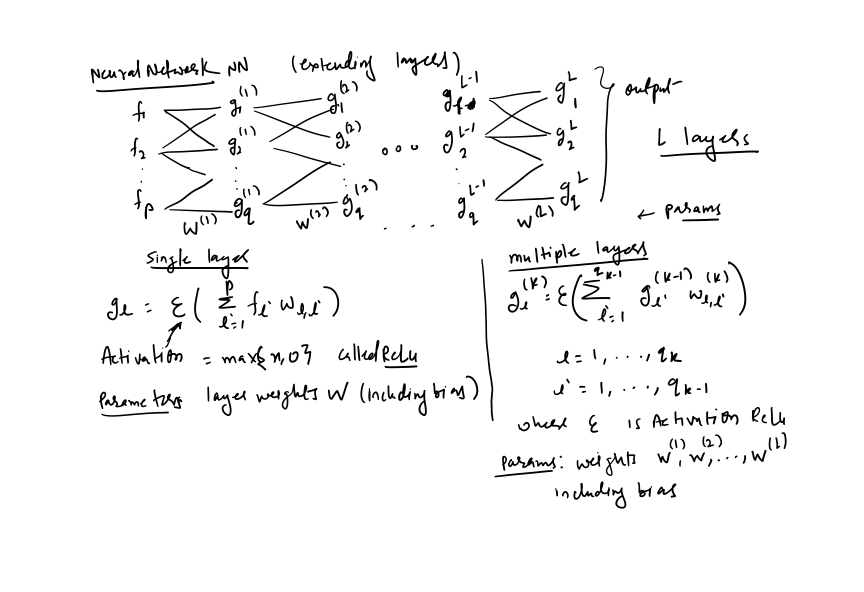 Neural Network NN (extending layers)
f₁ g₁⁽¹⁾ g₁⁽²⁾ g₁ᴸ⁻¹ g₁ᴸ output
f₂ g₂⁽¹⁾ g₂⁽²⁾ ... g₂ᴸ⁻¹ g₂ᴸ L layers
⋮ ⋮ ⋮ ⋮
fₚ g_q⁽¹⁾ g_q⁽²⁾ g_qᴸ⁻¹ g_qᴸ
W⁽¹⁾ W⁽²⁾ .... W⁽ᴸ⁾ ← params
Single layer
g_l = ε( Σ_{l'=1}^{p} f_{l'} w_{l,l'} )
Activation = max{x,0} called ReLu
Parameters layer weights W (including bias)
multiple layers
g_l^{(k)} = ε( Σ_{l'=1}^{q_{k-1}} g_{l'}^{(k-1)} w_{l,l'}^{(k)} )
l = 1, ..., q_k
l' = 1, ..., q_{k-1}
where ε is Activation Relu
Params: weights W⁽¹⁾, W⁽²⁾, ..., W⁽ᴸ⁾
including bias